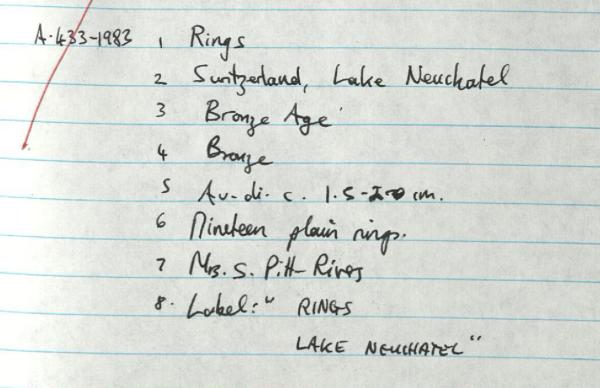 A.433-1983 1 Rings
2 Switzerland, Lake Neuchatel
3 Bronze Age
4 Bronze
5 Av. di. c. 1.5-2.0 cm.
6 Nineteen plain rings.
7 Mrs. S. Pitt-Rivers
8. Label: " RINGS
LAKE NEUCHATEL"